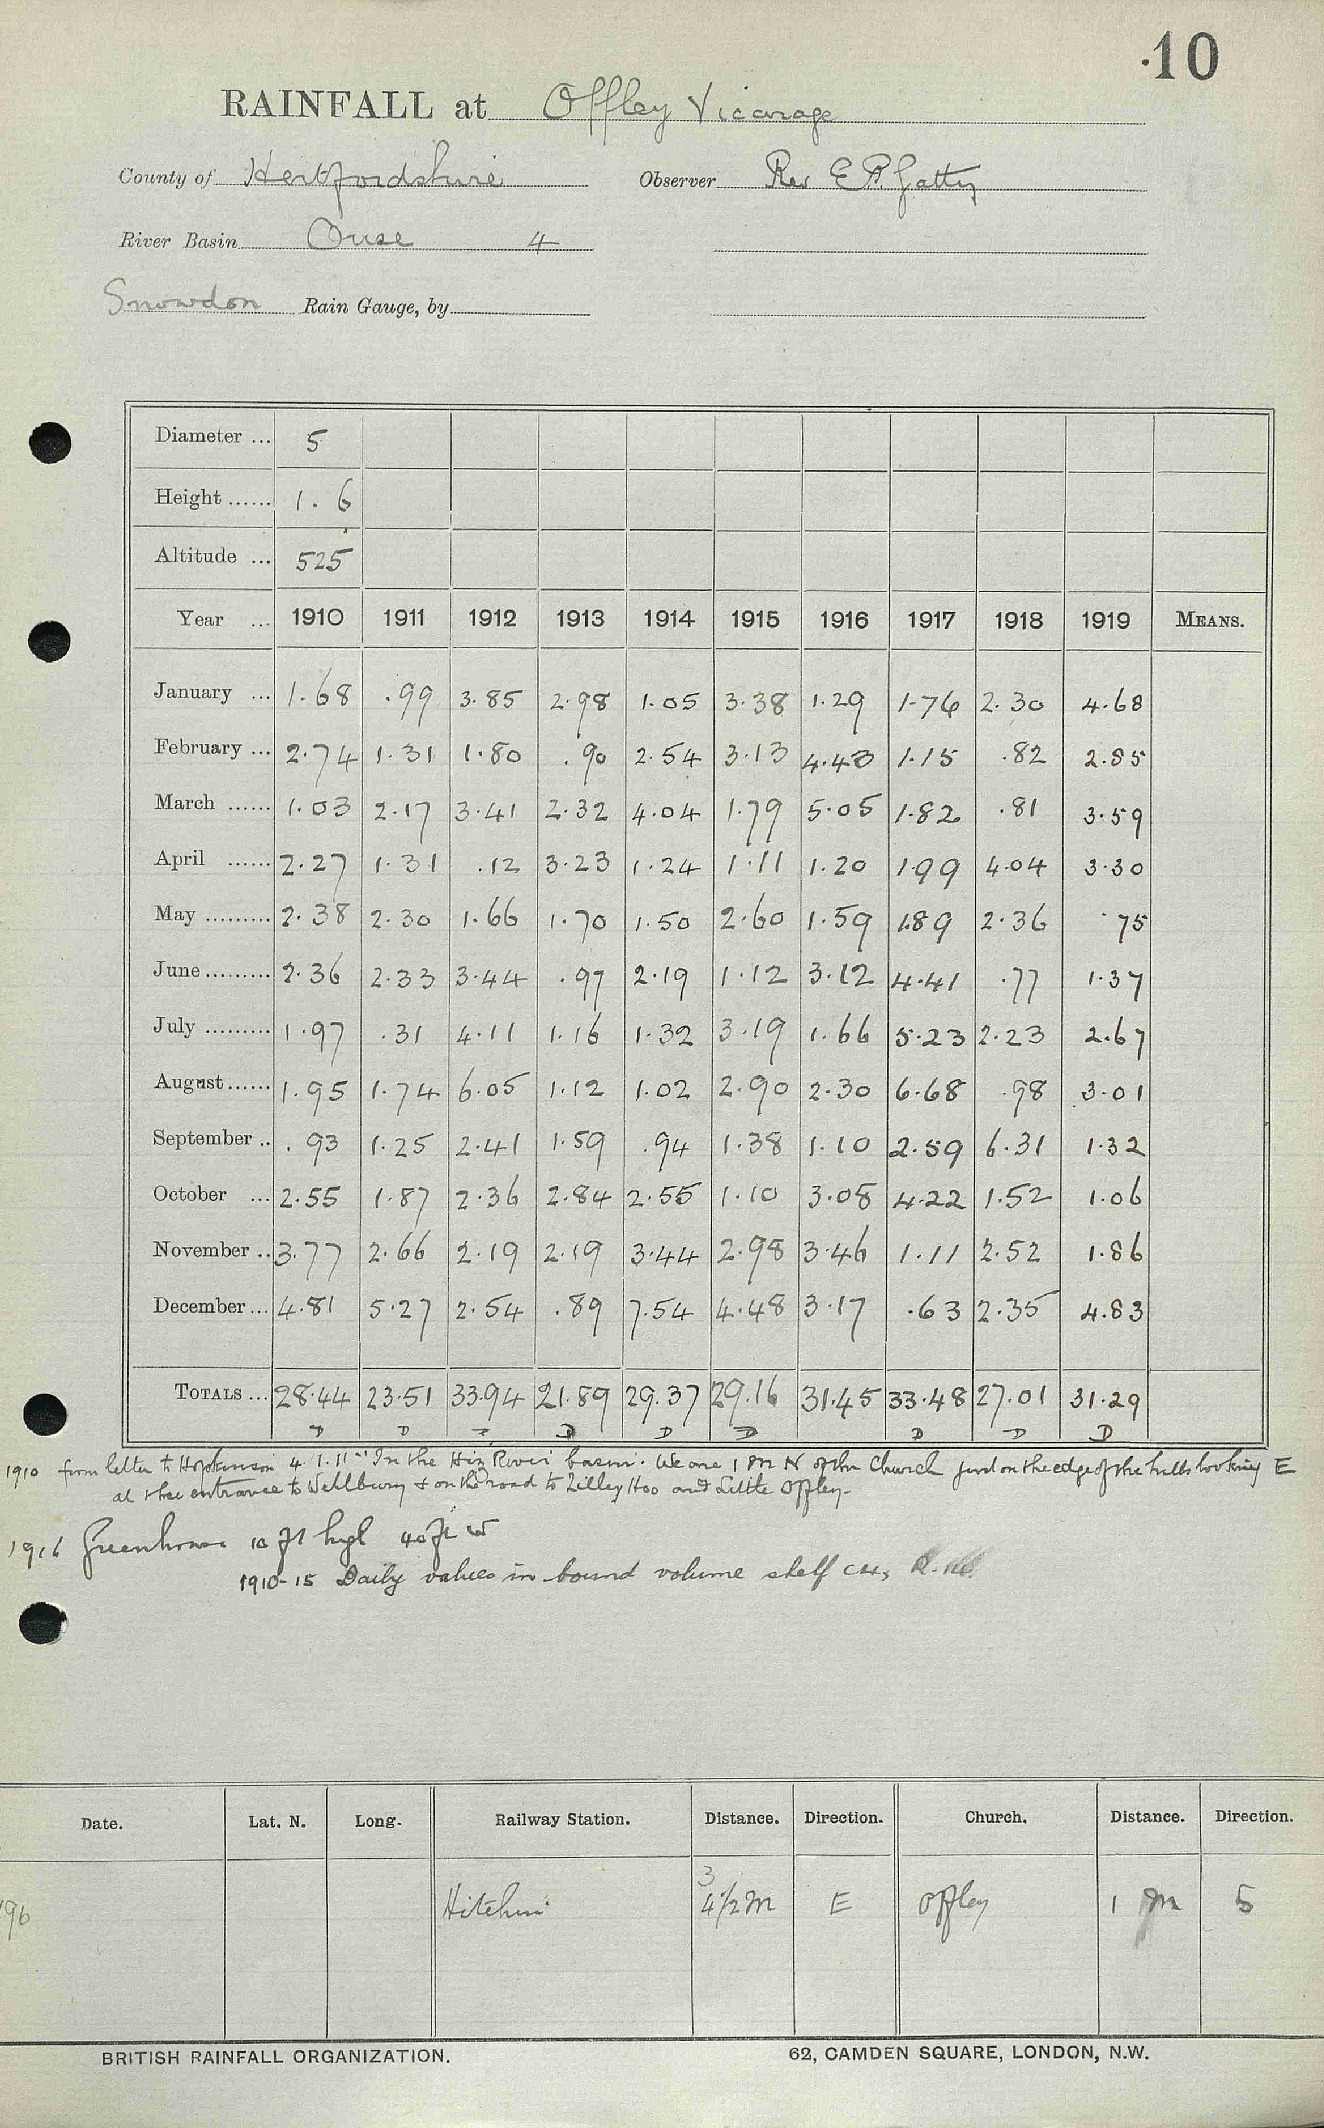 ·10
RAINFALL at Offley Vicarage
County of Hertfordshire Observer Rev E P Gatty
River Basin Ouse 4
Snowdon Rain Gauge, by
Diameter ... 5
Height ...... 1.6
Altitude ... 525
Year ... 1910 1911 1912 1913 1914 1915 1916 1917 1918 1919 MEANS.
January ... 1.68 .99 3.85 2.98 1.05 3.38 1.29 1.76 2.30 4.68
February ... 2.74 1.31 1.80 .90 2.54 3.13 4.43 1.15 .82 2.85
March ...... 1.03 2.17 3.41 2.32 4.04 1.79 5.05 1.82 .81 3.59
April ...... 2.27 1.31 .12 3.23 1.24 1.11 1.20 1.99 4.04 3.30
May ......... 2.38 2.30 1.66 1.70 1.50 2.60 1.59 1.89 2.36 .75
June ......... 2.36 2.33 3.44 .97 2.19 1.12 3.12 4.41 .77 1.37
July ......... 1.97 .31 4.11 1.16 1.32 3.19 1.66 5.23 2.23 2.67
August ...... 1.95 1.74 6.05 1.12 1.02 2.90 2.30 6.68 .98 3.01
September .. .93 1.25 2.41 1.59 .94 1.38 1.10 2.59 6.31 1.32
October ... 2.55 1.87 2.36 2.84 2.55 1.10 3.08 4.22 1.52 1.06
November .. 3.77 2.66 2.19 2.19 3.44 2.98 3.46 1.11 2.52 1.86
December ... 4.81 5.27 2.54 .89 7.54 4.48 3.17 .63 2.35 4.83
TOTALS ... 28.44 23.51 33.94 21.89 29.37 29.16 31.45 33.48 27.01 31.29
D D D D D D D D D
1910 from letter to Hopkinson 4 1.11 "In the Hiz River basin. We are 1 m N of the Church just on the edge of the hills looking E
at the entrance to Wellbury & on the road to Lilley Hoo and Little Offley.
1916 Greenhouse 10 ft high 40 ft W
1910-15 Daily values in bound volume shelf
Date. Lat. N. Long. Railway Station. Distance. Direction. Church. Distance. Direction.
3
Hitchin 4½ m E Offley 1 m S
BRITISH RAINFALL ORGANIZATION. 62, CAMDEN SQUARE, LONDON, N.W.